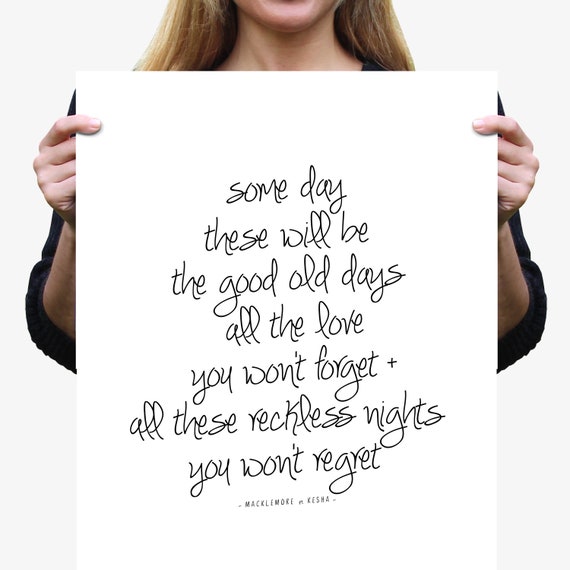 some day
these will be
the good old days
all the love
you won't forget +
all these reckless nights
you won't regret
- MACKLEMORE ft. KESHA -